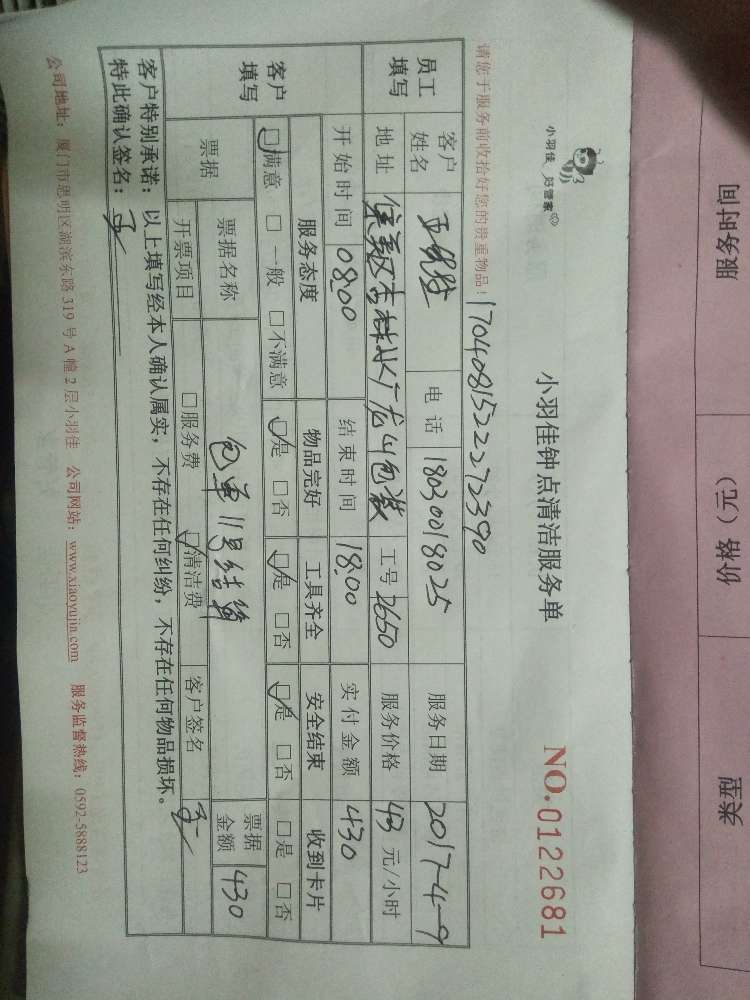 服务时间 价格（元） 类型
小羽佳 好管家
小羽佳钟点清洁服务单
NO.0122681
请您于服务前收拾好您的贵重物品！1704081522272390
员工填写 客户姓名 电话 18030018025 服务日期 2017-4-9
地址 工号 2650 服务价格 43 元/小时
开始时间 08:00 结束时间 18:00 实付金额 430
客户填写 服务态度 物品完好 工具齐全 安全结束 收到卡片
☑满意 □一般 □不满意 ☑是 □否 ☑是 □否 ☑是 □否 □是 □否
票据 票据名称 包单11号结算 票据金额 430
开票项目 □服务费 ☑清洁费 客户签名
客户特别承诺：以上填写经本人确认属实，不存在任何纠纷，不存在任何物品损坏。
特此确认签名：
公司地址：厦门市思明区湖滨东路319号A幢2层小羽佳 公司网站：www.xiaoyujia.com 服务监督热线：0592-5888123